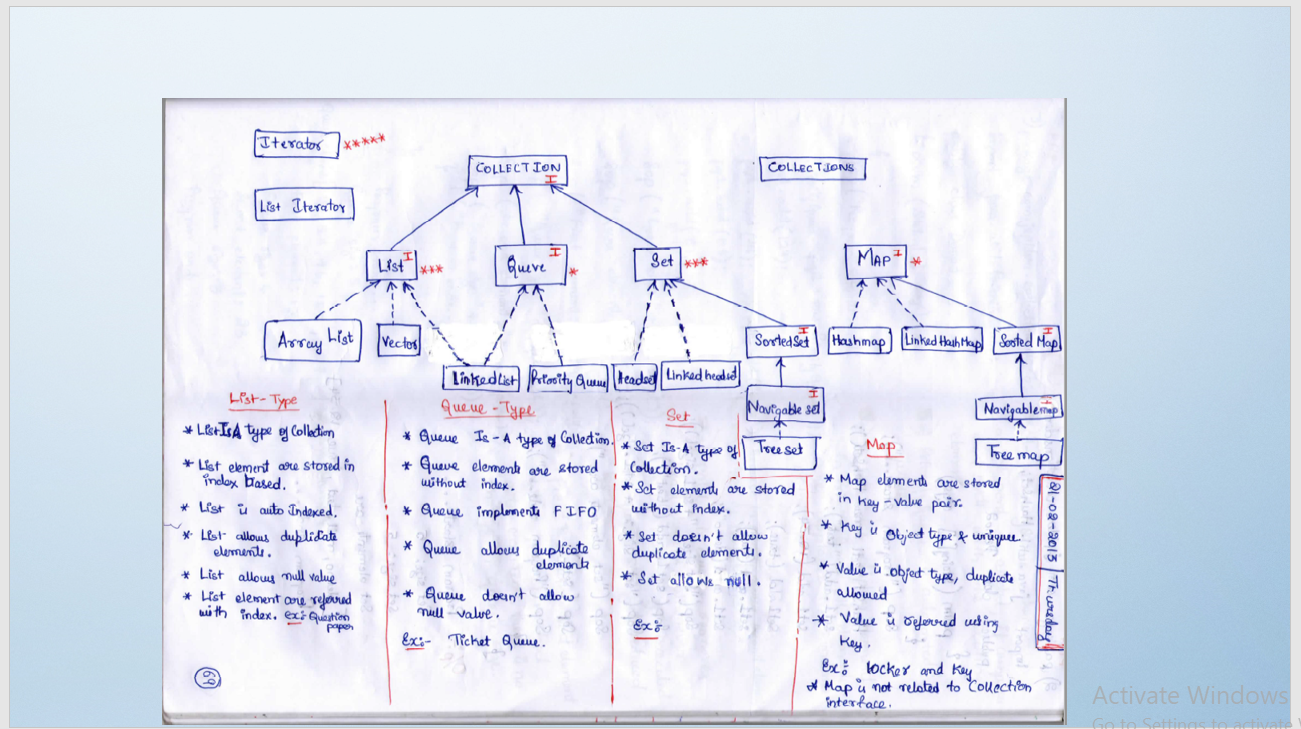 Iterator *****
COLLECTION I
COLLECTIONS
List Iterator
List I ***
Queue I *
Set I ***
MAP I *
Array List
Vector
LinkedList
Priority Queue
Headset
Linked headset
SortedSet I
Hashmap
Linked Hash Map
Sorted Map I
Navigable set I
Navigable map I
Tree set
Tree map
List-Type
* List IsA type of Collection
* List element are stored in
index based.
* List is auto Indexed.
* List allows duplicate
elements.
* List allows null value
* List element are referred
with index. Ex: Question
paper
69
Queue-Type
* Queue Is-A type of Collection.
* Queue elements are stored
without index.
* Queue implements FIFO
* Queue allows duplicate
elements
* Queue doesn't allow
null-value.
Ex:- Ticket Queue.
Set
* Set Is-A type of
Collection.
* Set elements are stored
without index.
* Set doesn't allow
duplicate elements.
* Set allows null.
Ex:
Map
* Map elements are stored
in key-value pair.
* Key is Object type & unique
* Value is object type, duplicate
allowed
* Value is referred using
Key.
Ex: locker and key
* Map is not related to Collection
interface.
21-02-2013 Thursday
Activate Windows
Go to Settings to activate